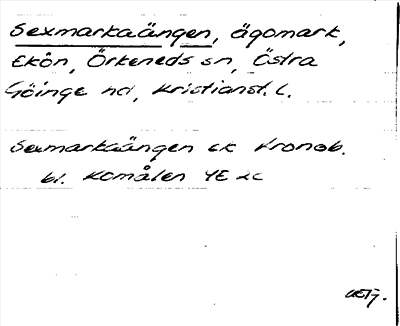 Sexmarkaängen, ägomark,
Ekön, Örkeneds sn, Östra
Göinge hd, Kristianst. l.
Sexmarkaängen ek Kronob.
bl. Komålen 4E 2c